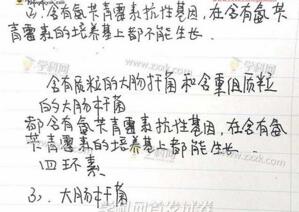 ②、含有氨苄青霉素抗性基因,在含有氨苄
青霉素的培养基上都不能生长.
含有质粒的大肠杆菌和含重组质粒
的大肠杆菌
都含有氨苄青霉素抗性基因,在含有氨
苄青霉素的培养基上都能生长.
四环素
3、大肠杆菌